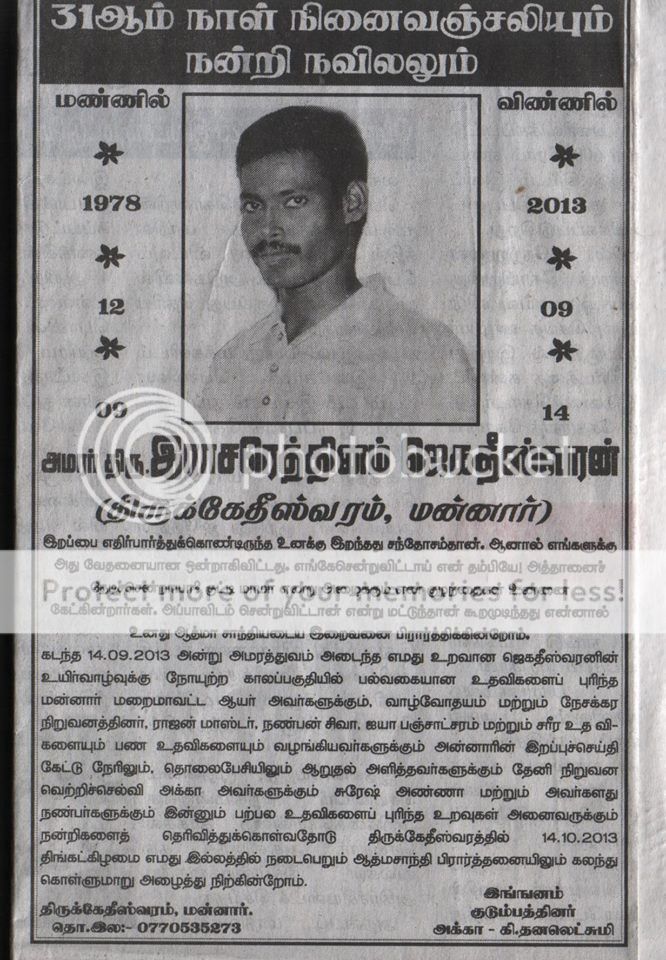 31ஆம் நாள் நினைவஞ்சலியும்
நன்றி நவிலலும்
மண்ணில்
1978
12
09
விண்ணில்
2013
09
14
அமரர் திரு. இராசரெத்தினம் ஜெகதீஸ்வரன்
(திருக்கேதீஸ்வரம், மன்னார்)
இறப்பை எதிர்பார்த்துக்கொண்டிருந்த உனக்கு இறந்தது சந்தோசம்தான். ஆனால் எங்களுக்கு
அது வேதனையான ஒன்றாகிவிட்டது. எங்கேசென்றுவிட்டாய் என் தம்பியே! அத்தானைச்
கேட்கின்றார்கள். அப்பாவிடம் சென்றுவிட்டான் என்று மட்டுந்தான் கூறமுடிந்தது என்னால்
உனது ஆத்மா சாந்தியடைய இறைவனை பிரார்த்திக்கின்றோம்.
கடந்த 14.09.2013 அன்று அமரத்துவம் அடைந்த எமது உறவான ஜெகதீஸ்வரனின்
உயிர்வாழ்வுக்கு நோயுற்ற காலப்பகுதியில் பல்வகையான உதவிகளைப் புரிந்த
மன்னார் மறைமாவட்ட ஆயர் அவர்களுக்கும், வாழ்வோதயம் மற்றும் நேசக்கர
நிறுவனத்தினர், ராஜன் மாஸ்டர், நண்பன் சிவா, ஐயா பஞ்சாட்சரம் மற்றும் சரீர உத வி-
களையும் பண உதவிகளையும் வழங்கியவர்களுக்கும் அன்னாரின் இறப்புச்செய்தி
கேட்டு நேரிலும், தொலைபேசியிலும் ஆறுதல் அளித்தவர்களுக்கும் தேனி நிறுவன
வெற்றிச்செல்வி அக்கா அவர்களுக்கும் சுரேஷ் அண்ணா மற்றும் அவர்களது
நண்பர்களுக்கும் இன்னும் பற்பல உதவிகளைப் புரிந்த உறவுகள் அனைவருக்கும்
நன்றிகளைத் தெரிவித்துக்கொள்வதோடு திருக்கேதீஸ்வரத்தில் 14.10.2013
திங்கட்கிழமை எமது இல்லத்தில் நடைபெறும் ஆத்மசாந்தி பிரார்த்தனையிலும் கலந்து
கொள்ளுமாறு அழைத்து நிற்கின்றோம்.
திருக்கேதீஸ்வரம், மன்னார்.
தொ.இல:- 0770535273
இங்ஙனம்
குடும்பத்தினர்
அக்கா - கி.தனலெட்சுமி
photobucket
Protect more of your memories for less!